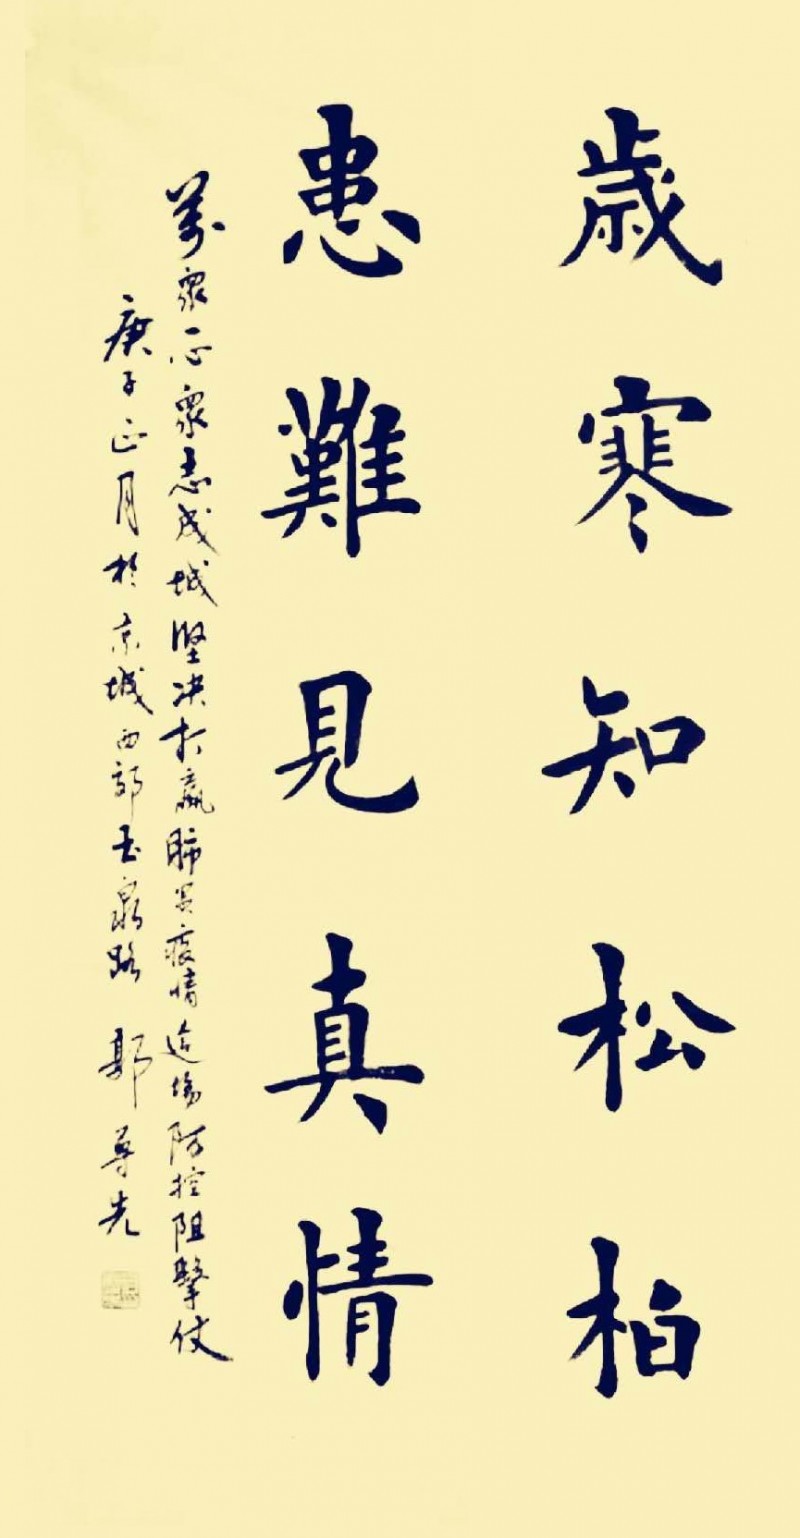 歲寒知松柏
患難見真情
萬眾一心眾志成城堅决打贏肺炎疫情這場防控阻擊仗
庚子正月於京城西部玉泉路 郭尊先